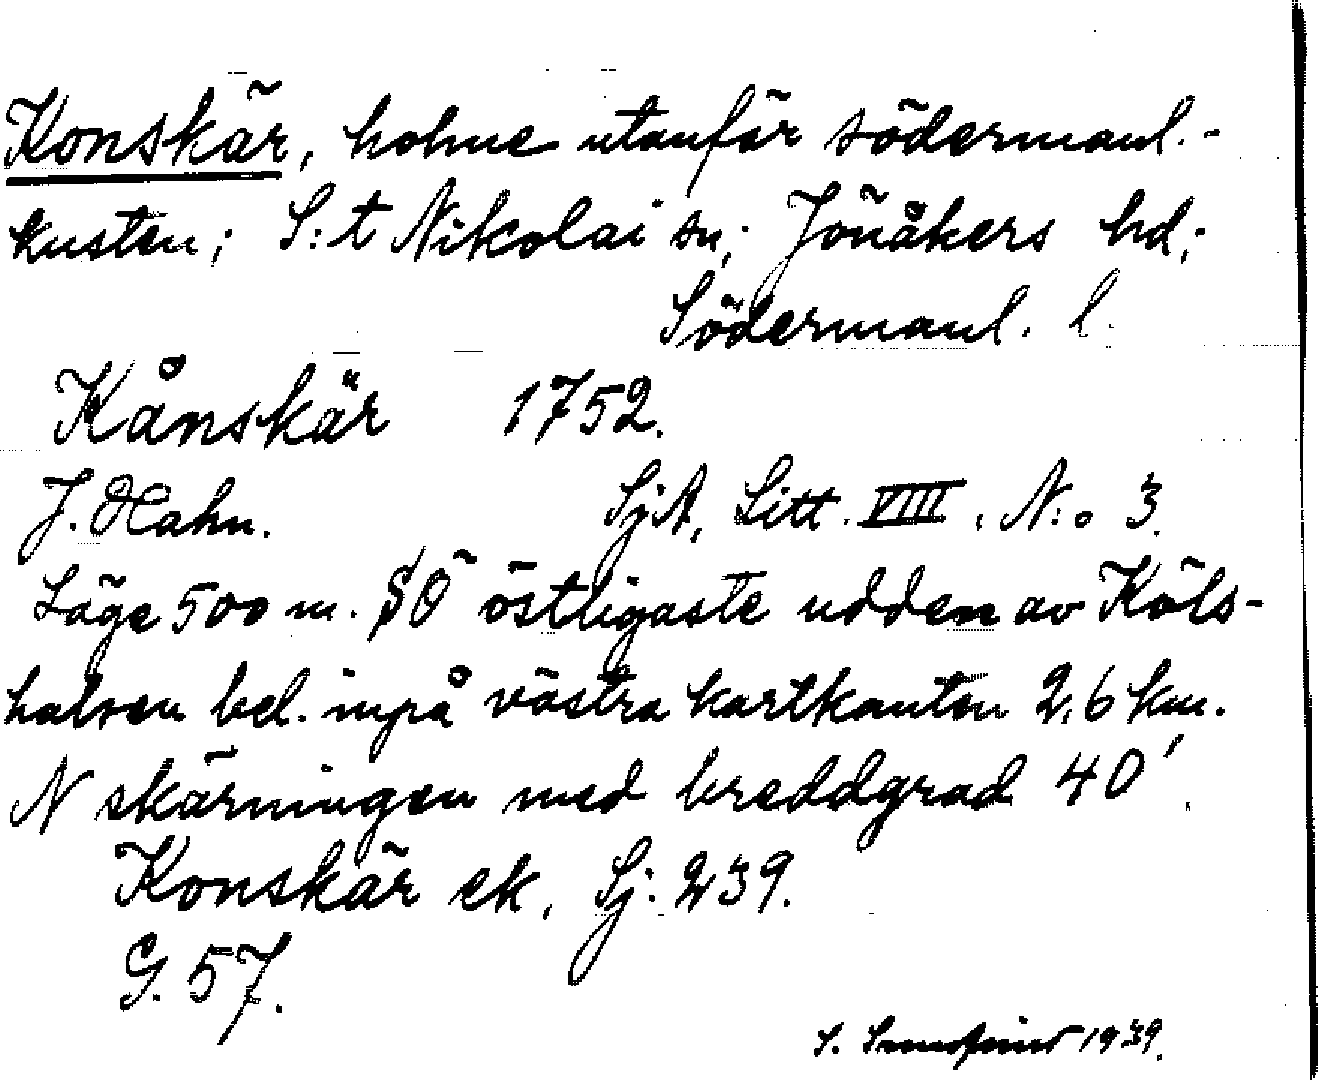 Konskär, holme utanför södermanl.-
kusten; S:t Nikolai sn; Jönåkers hd;
Södermanl. l.
Kånskär 1752.
J. Hahn. SjA, Litt. VIII. N:o 3.
Läge 500 m. SÖ östligaste udden av Köls-
halsen bel. inpå västra kartkanten 2,6 km.
N skärningen med breddgrad 40'.
Konskär ek. Sj. 239.
G. 57.
S. 1939.